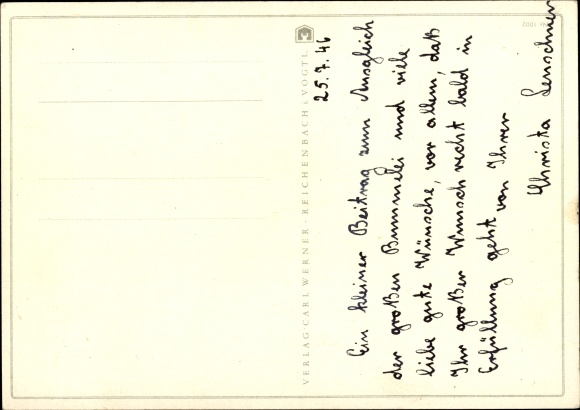 25.7.46
Ein kleiner Beitrag zum Ausgleich
der großen Bummelei und viele
liebe gute Wünsche, vor allem, daß
Ihr großer Wunsch recht bald in
Erfüllung geht von Ihrer
Christa
VERLAG·CARL WERNER · REICHENBACH i. VOGTL.